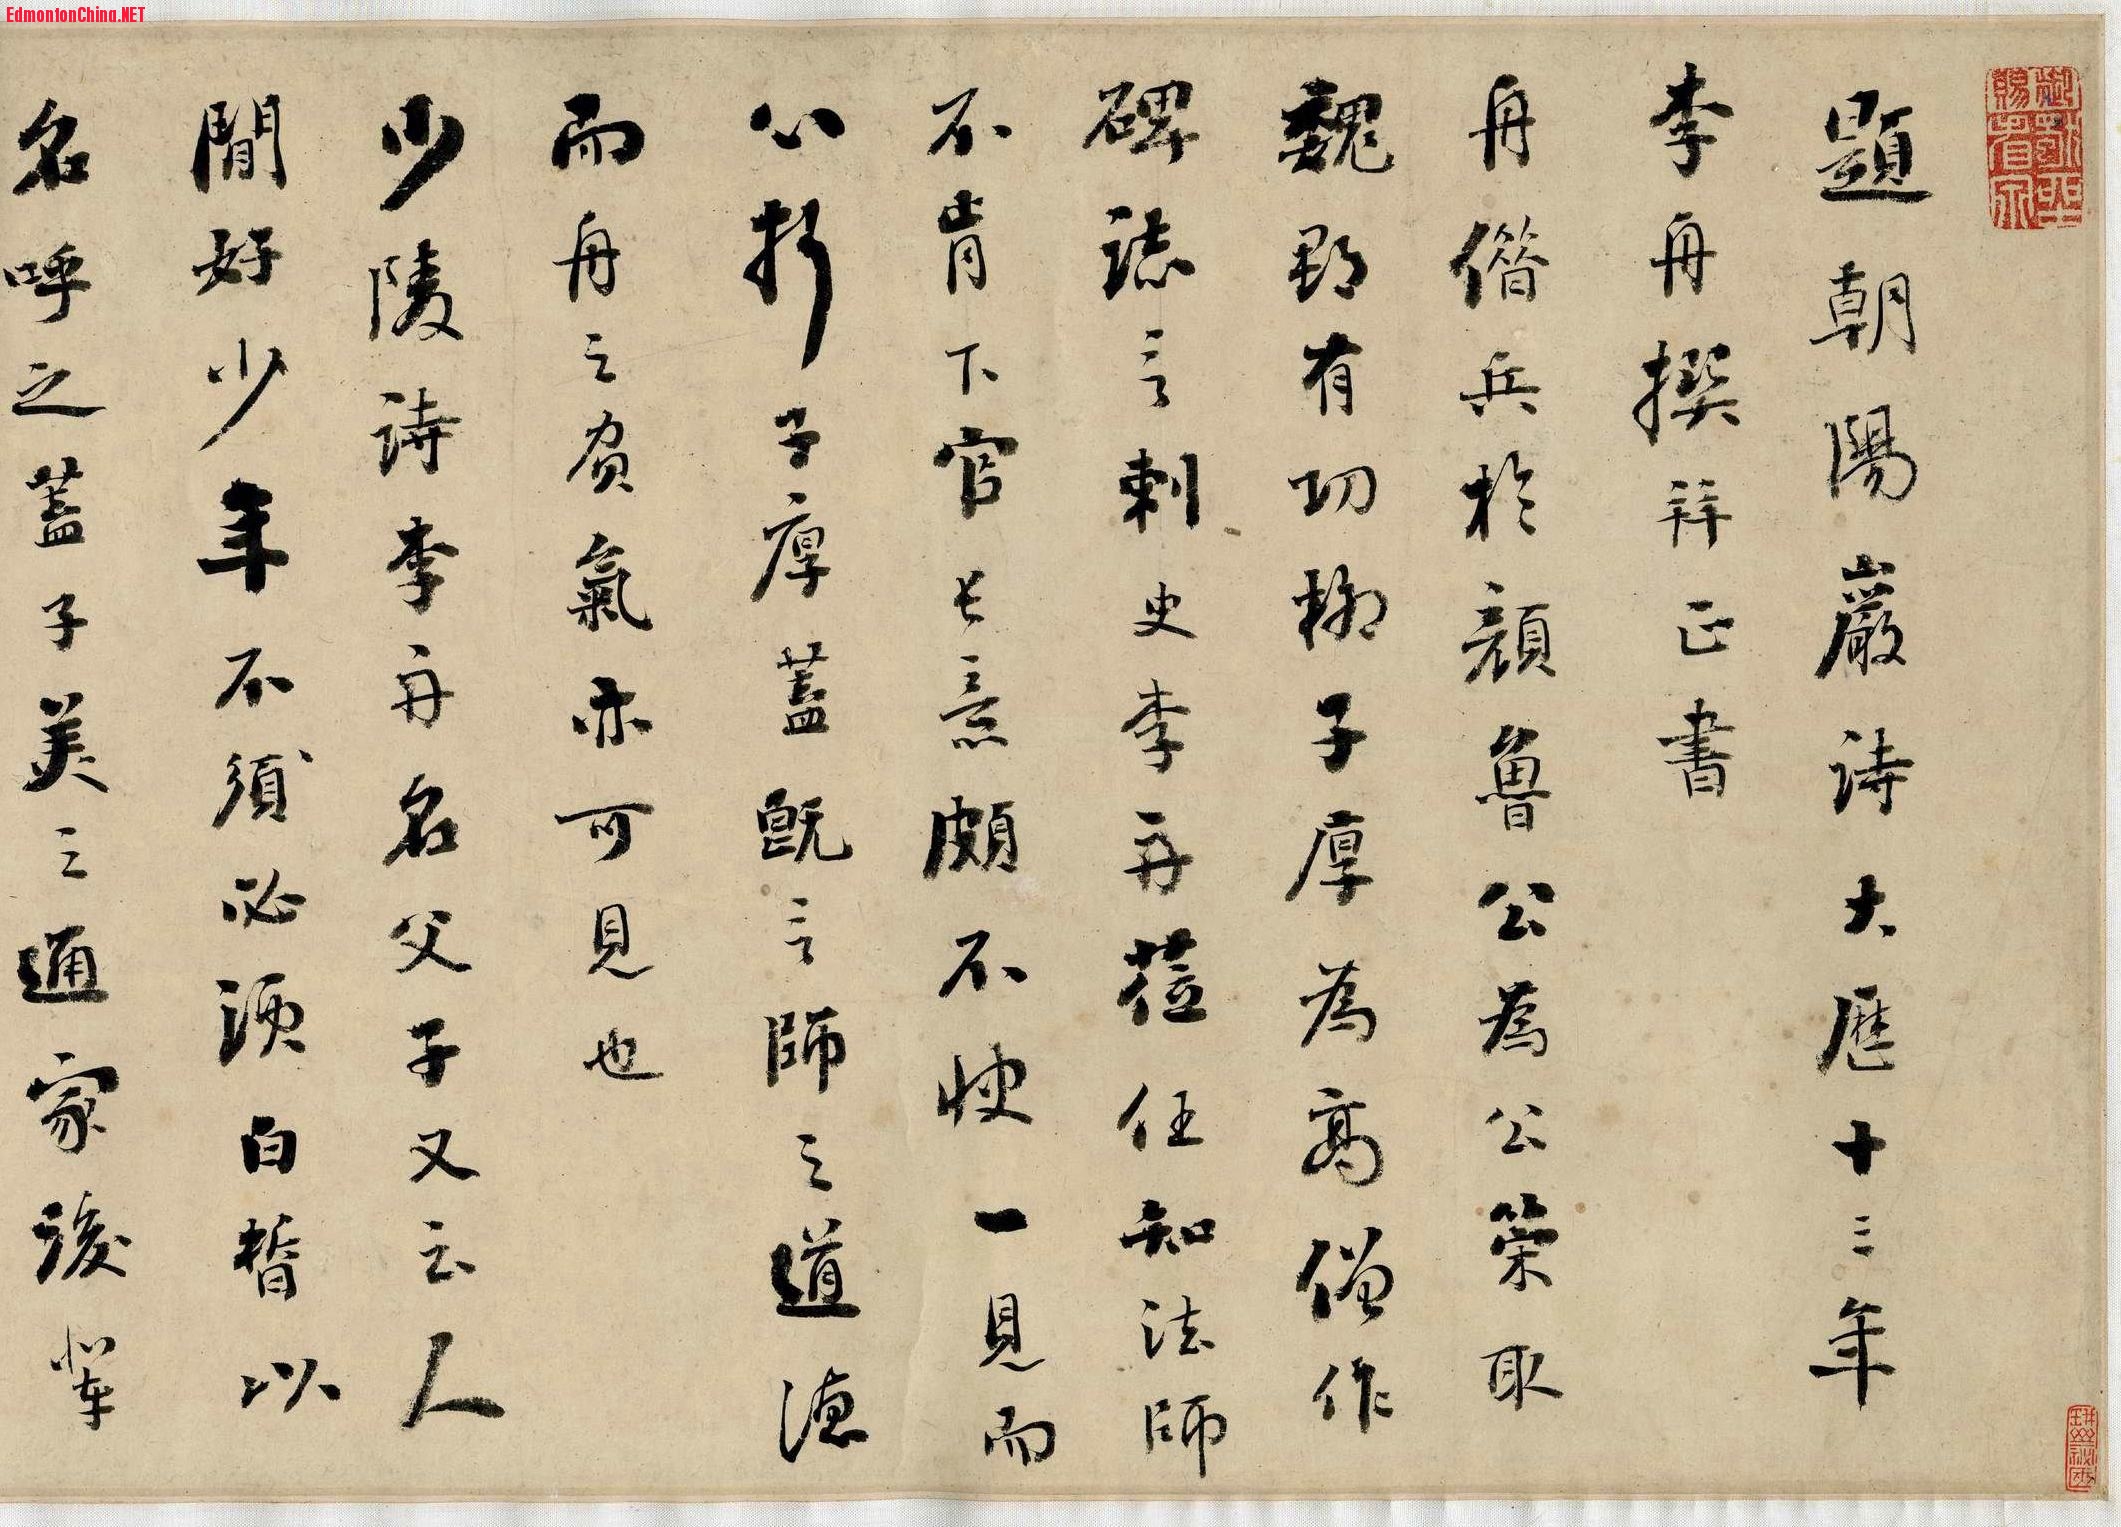 EdmontonChina.NET
題朝陽巖詩大歷十三年
李舟撰并正書
舟偕兵於顏魯公為公榮取
魏郡有功柳子厚為高僧作
碑誌言刺史李舟莅任知法師
不肯下官長意頗不快一見而
心折子厚蓋既言師之道德
而舟之負氣亦可見也
少陵詩李舟名父子又云人
間好少年不須必須白皙以
名呼之蓋子美之通家後輩